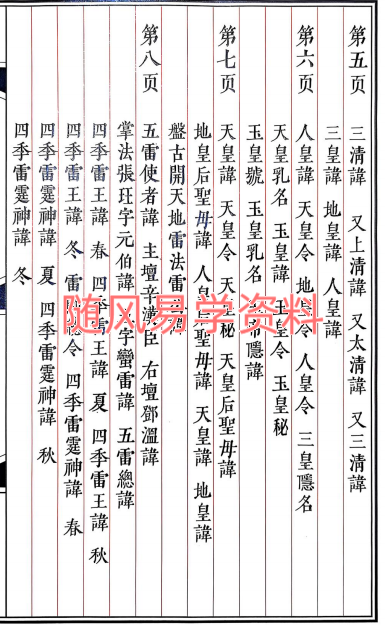 第五页 三清諱 又上清諱 又太清諱 又三清諱
三皇諱 地皇諱 人皇諱
第六页 人皇諱 天皇令 地皇令 人皇令 三皇隱名
天皇乳名 玉皇諱 玉皇令 玉皇秘
玉皇號 玉皇乳名 隱諱
第七页 天皇諱 天皇令 天皇秘 天皇后聖毋諱
地皇后聖毋諱 人皇后聖毋諱 天皇諱 地皇諱
盤古開天地雷法雷
第八页 五雷使者諱 主壇辛漢臣 右壇鄧溫諱
掌法張玨字元伯諱 字蠻雷諱 五雷總諱
四季雷王諱 春 四季雷王諱 夏 四季雷王諱 秋
四季雷王諱 冬 雷 令 四季雷霆神諱 春
四季雷霆神諱 夏 四季雷霆神諱 秋
四季雷霆神諱 冬
随风易学资料